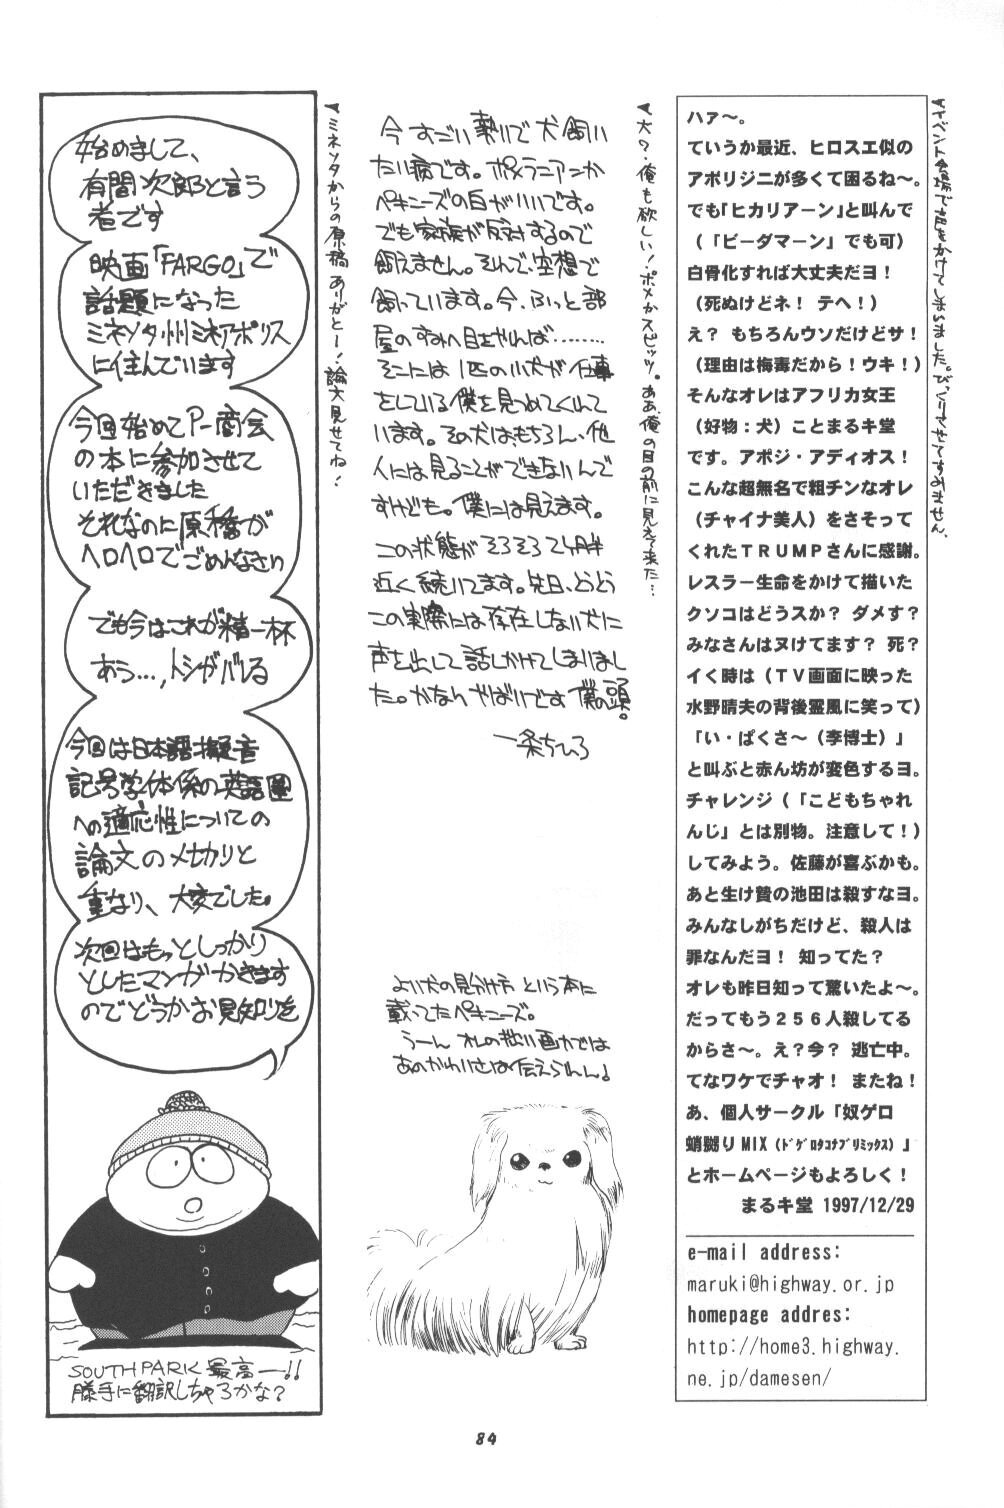 ▼イベント会場で声をかけてしまいました。びっくりさせてすみません。
ハァ～。
ていうか最近、ヒロスエ似の
アボリジニが多くて困るね～。
でも「ヒカリアーン」と叫んで
（「ビーダマーン」でも可）
白骨化すれば大丈夫だヨ！
（死ぬけどネ！ テヘ！）
え？ もちろんウソだけどサ！
（理由は梅毒だから！ウキ！）
そんなオレはアフリカ女王
（好物：犬）ことまるキ堂
です。アボジ・アディオス！
こんな超無名で粗チンなオレ
（チャイナ美人）をさそって
くれたＴＲＵＭＰさんに感謝。
レスラー生命をかけて描いた
クソコはどうスか？ ダメす？
みなさんはヌけてます？ 死？
イく時は（ＴＶ画面に映った
水野晴夫の背後霊風に笑って）
「い・ぱくさ～（李博士）」
と叫ぶと赤ん坊が変色するヨ。
チャレンジ（「こどもちゃれ
んじ」とは別物。注意して！）
してみよう。佐藤が喜ぶかも。
あと生け贄の池田は殺すなヨ。
みんなしがちだけど、殺人は
罪なんだヨ！ 知ってた？
オレも昨日知って驚いたよ～。
だってもう２５６人殺してる
からさ～。え？今？ 逃亡中。
てなワケでチャオ！ またね！
あ、個人サークル「奴ゲロ
蛸嬲りMIX（ﾄﾞｹﾞﾛﾀｺﾅﾌﾞﾘﾐｯｸｽ）」
とホームページもよろしく！
まるキ堂 1997/12/29
e-mail address:
maruki@highway.or.jp
homepage addres:
http://home3.highway.
ne.jp/damesen/
▼犬？・俺も欲しい！・ポメかスピッツ。ああ、俺の目の前に見えて来た…
今すごい勢いで犬飼い
たい病です。ポメラニアンか
ペキニーズの白がいいです。
でも家族が反対するので
飼えません。それで、空想で
飼っています。今、ふっと部
屋のすみへ目をやれば………
そこには1匹の小犬が仕事
をしている僕を見つめてくれて
います。その犬は、もちろん、他
人には見ることができないんで
すけども。僕には見えます。
この状態がそろそろ2ヶ月半
近く続いてます。先日、とうとう
この実際には存在しない犬に
声を出して話しかけてしまいまし
た。かなりやばいです 僕の頭。
一条ちひろ
よい犬の見分け方 という本に
載ってたペキニーズ。
うーん オレの拙い画力では
あのかわいさは伝えられん♩
▼ミネソタからの原稿ありがとー！論文見せてね！
始めまして、
有間次郎と言う
者です
映画「FARGO」で
話題になった
ミネソタ州ミネアポリス
に住んでいます
今回始めてP-商会
の本に参加させて
いただきました
それなのに原稿が
ヘロヘロでごめんなさい
でも今はこれが精一杯
あう…,トシがバレる
今回は日本語擬音
記号学体係の英語圏
への適応性についての
論文の〆切りと
重なり、大変でした。
次回はもっとしっかり
としたマンガかきます
のでどうかお見知りを
SOUTH PARK 最高ー!!
勝手に翻訳しちゃろかな?
84